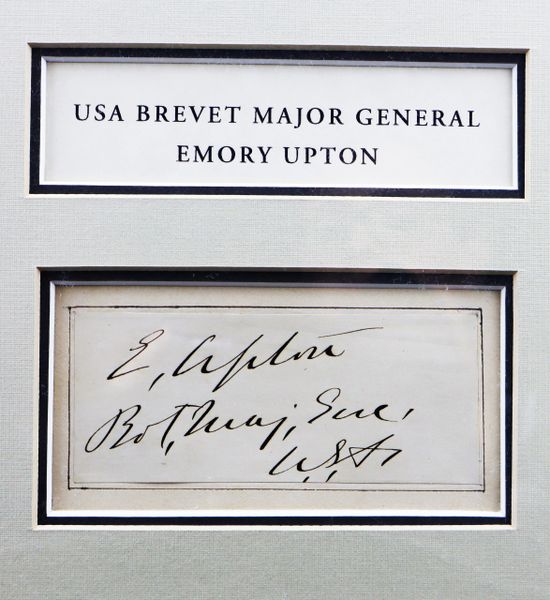 USA BREVET MAJOR GENERAL
EMORY UPTON
E, Upton
Bvt, Maj, Gen,
U.S.A.